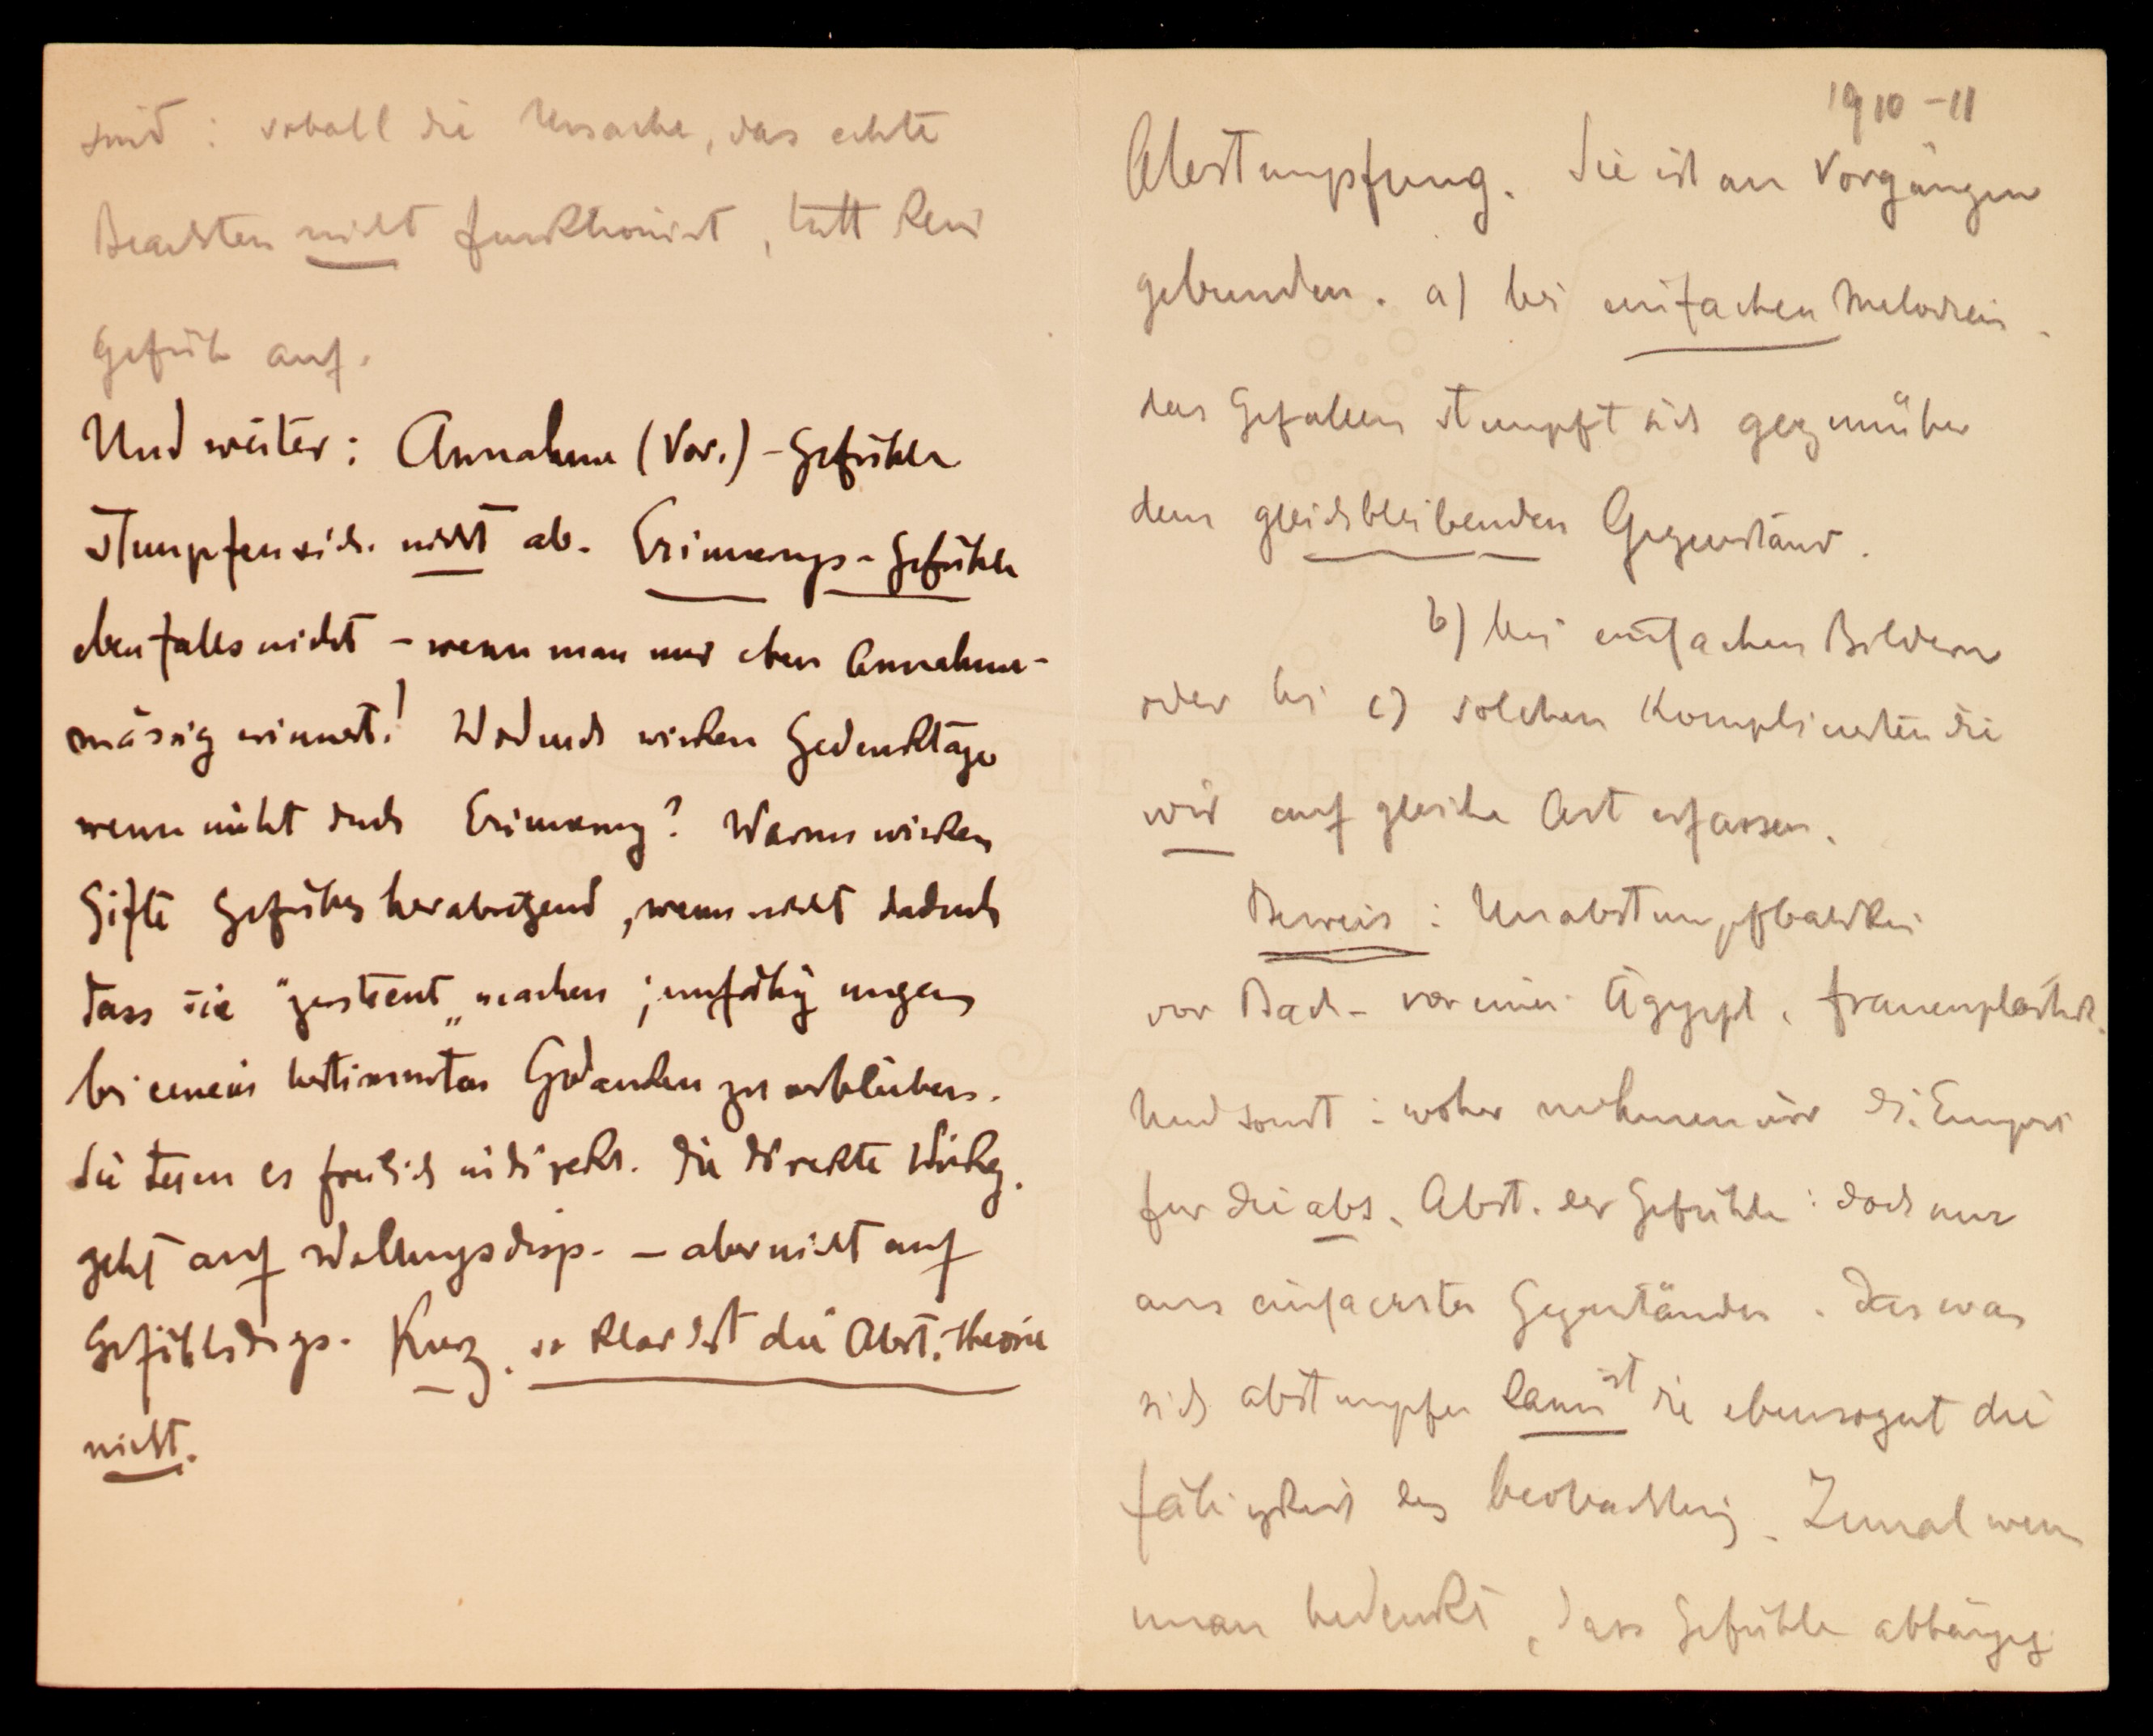 1910-11
Abstumpfung. Sie ist an Vorgängen
gebunden. a) bei einfachen Melodien.
das Gefallen stumpft sich gegenüber
dem gleichbleibenden Gegenstand.
b) bei einfachen Bildern
oder bei c) solchen Komplicierten die
wir auf gleiche Art erfassen.
Beweis: Unabstumpfbarkei
vor Bach - vor einer Ägypt. Frauenplastik.
Und sonst: woher nehmen wir di. Empirie
für die abs. Abst. der Gefühle: doch nur
aus einfachsten Gegenständen. Das was
sich abstumpfen kann ist die ebensogut die
Fähigkeit der Beobachtung. Zumal wenn
man bedenkt, dass Gefühle abhängig
sind: sobald die Ursache, das echte
Beachten nicht funktioniert, tritt kein
Gefühl auf.
Und weiter: Annahme (Vor.) - Gefühle
stumpfen sich nicht ab. Erinnerungs-Gefühle
ebenfalls nicht - wenn man nur eben Annahme-
mässig erinnert! Wodurch wirken Gedenktage
wenn nicht durch Erinnerung? Warum wirken
Gifte Gefühls herabsetzend, wenn nicht dadurch
dass sie "zerstreut" machen; unfähig ungern
bei einem bestimmten Gedanken zu verbleiben.
Sie tuen es freilich indirekt. Die direkte Wirkg.
geht auf Wollungsdisp. - aber nicht auf
Gefühlsdisps. Kurz. so klar ist die Abst. Theorie
nicht.